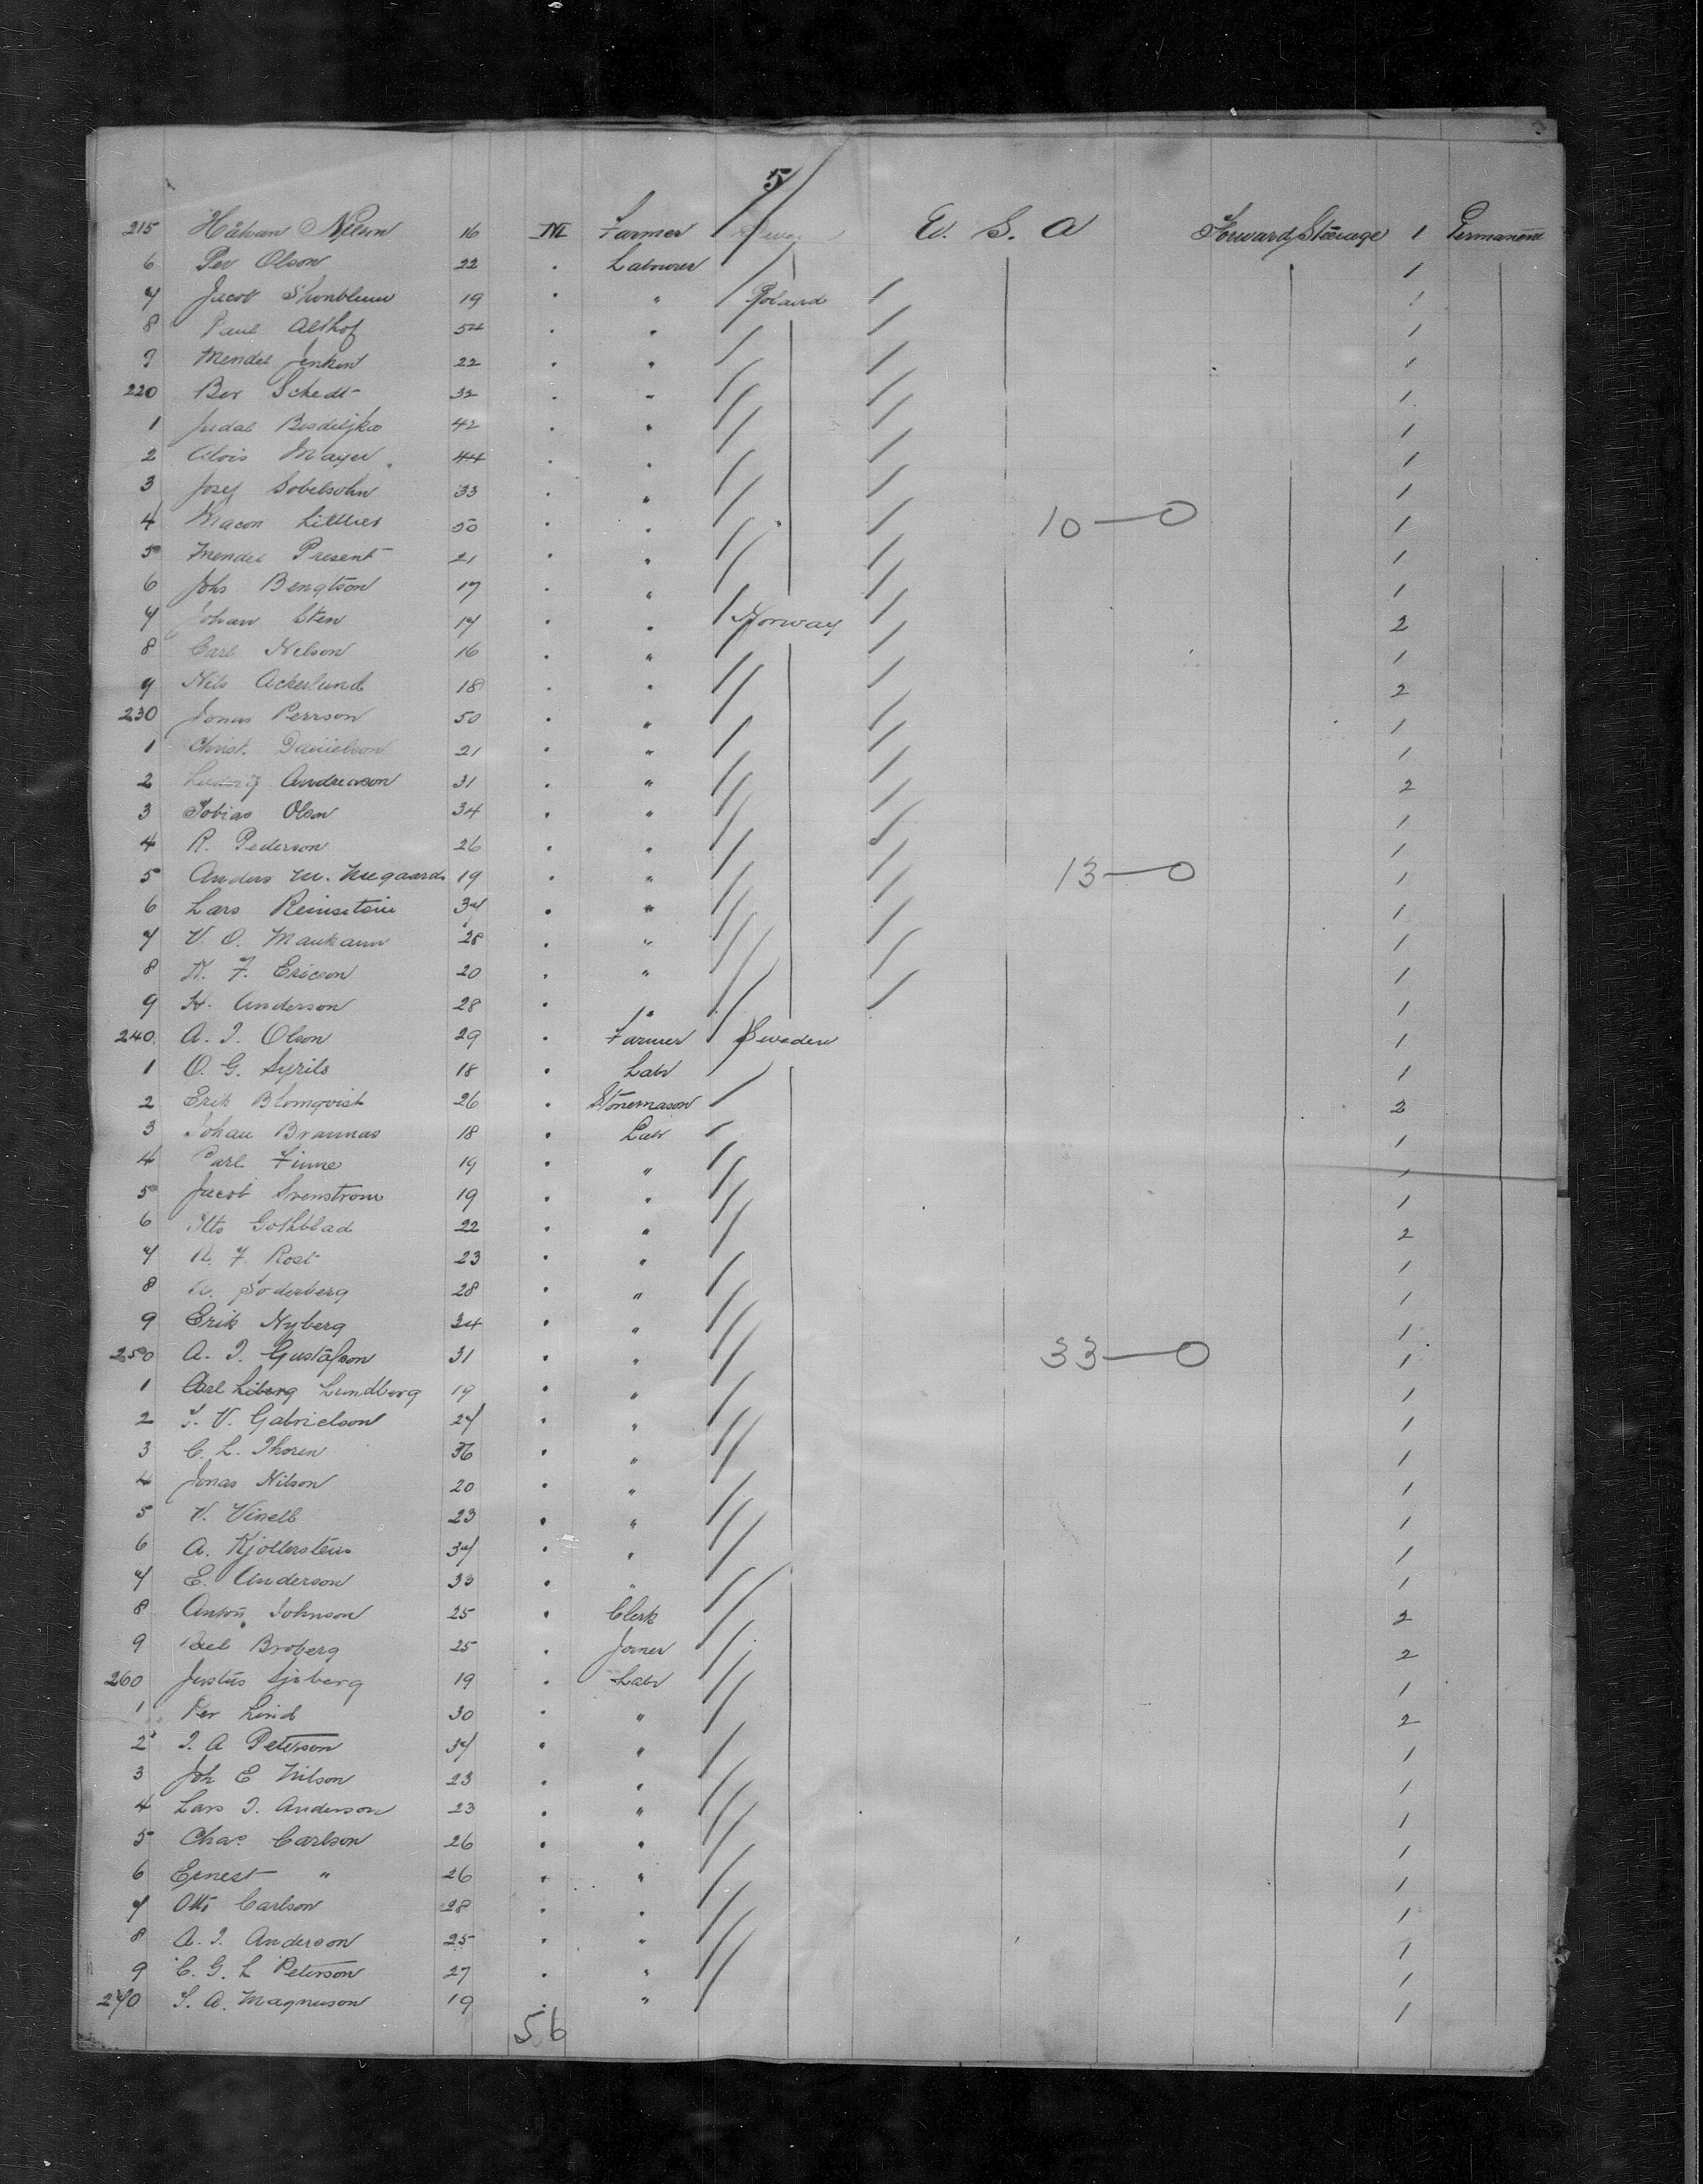 5
215 Håkan Nilson 16 M Farmer Swe U. S. A Forward Steerage 1 Permanent
6 Per Olson 22 . Labourer 1
7 Jacob Shonblum 19 . " Poland 1
8 Paul Althof 54 . " 1
9 Mendel Jenken 22 . " 1
220 Ber Schedt 32 . " 1
1 Judal Besdeljko 42 . " 1
2 Alois Mayer 44 . " 1
3 Josef Sobelsohn 33 . " 1
4 50 . " 10—0 1
5 Mendel Present 21 . " 1
6 Johs Bengtson 17 . " 1
7 Johan Sten 17 . " Norway 2
8 Carl Nelson 16 . " 1
9 Nils Ackerlund 18 . " 2
230 Jonas Perrson 50 . " 1
1 Christ. Danielson 21 . " 1
2 Ludvig Andreason 31 . " 2
3 Tobias Olson 34 . " 1
4 R. Pederson 26 . " 1
5 Anders M. Nugaards 19 . " 13—0 1
6 Lars Reinstein 37 . " 1
7 V. O. Maukann 28 . " 1
8 K. F. Ericson 20 . " 1
9 H. Anderson 28 . " 1
240 A. J. Olson 29 . Farmer Sweden 1
1 O. G. Syrils 18 . Labr 1
2 Erik Blomqvist 26 . Stonemason 2
3 Johan Brannas 18 . Labr 1
4 Carl Finne 19 . " 1
5 Jacob Svenstrom 19 . " 1
6 Otto Gothblad 22 . " 2
7 F. Rost 23 . " 1
8 Soderberg 28 . " 1
9 Erik Nyberg 34 . " 1
250 A. J. Gustafson 31 . " 33—0 1
1 Carl Liberg Lundberg 19 . " 1
2 J. V. Gabrielson 27 . " 1
3 C. L. Thoren 36 . " 1
4 Jonas Nilson 20 . " 1
5 V. Vinell 23 . " 1
6 A. Kjollerstein 37 . " 1
7 E. Anderson 33 . " 1
8 Anton Johnson 25 . Clerk 2
9 Broberg 25 . Joiner 2
260 Justus Sjoberg 19 . Labr 1
1 Per Lind 30 . " 2
2 J. A Peterson 37 . " 1
3 Joh E Nilson 23 . " 1
4 Lars J. Anderson 23 . " 1
5 Chas Carlson 26 . " 1
6 Ernest " 26 . " 1
7 Otto Carlson 28 . " 1
8 A. J. Anderson 25 . " 1
9 C. G. L Peterson 27 . " 1
270 J. A. Magnuson 19 . " 1
56